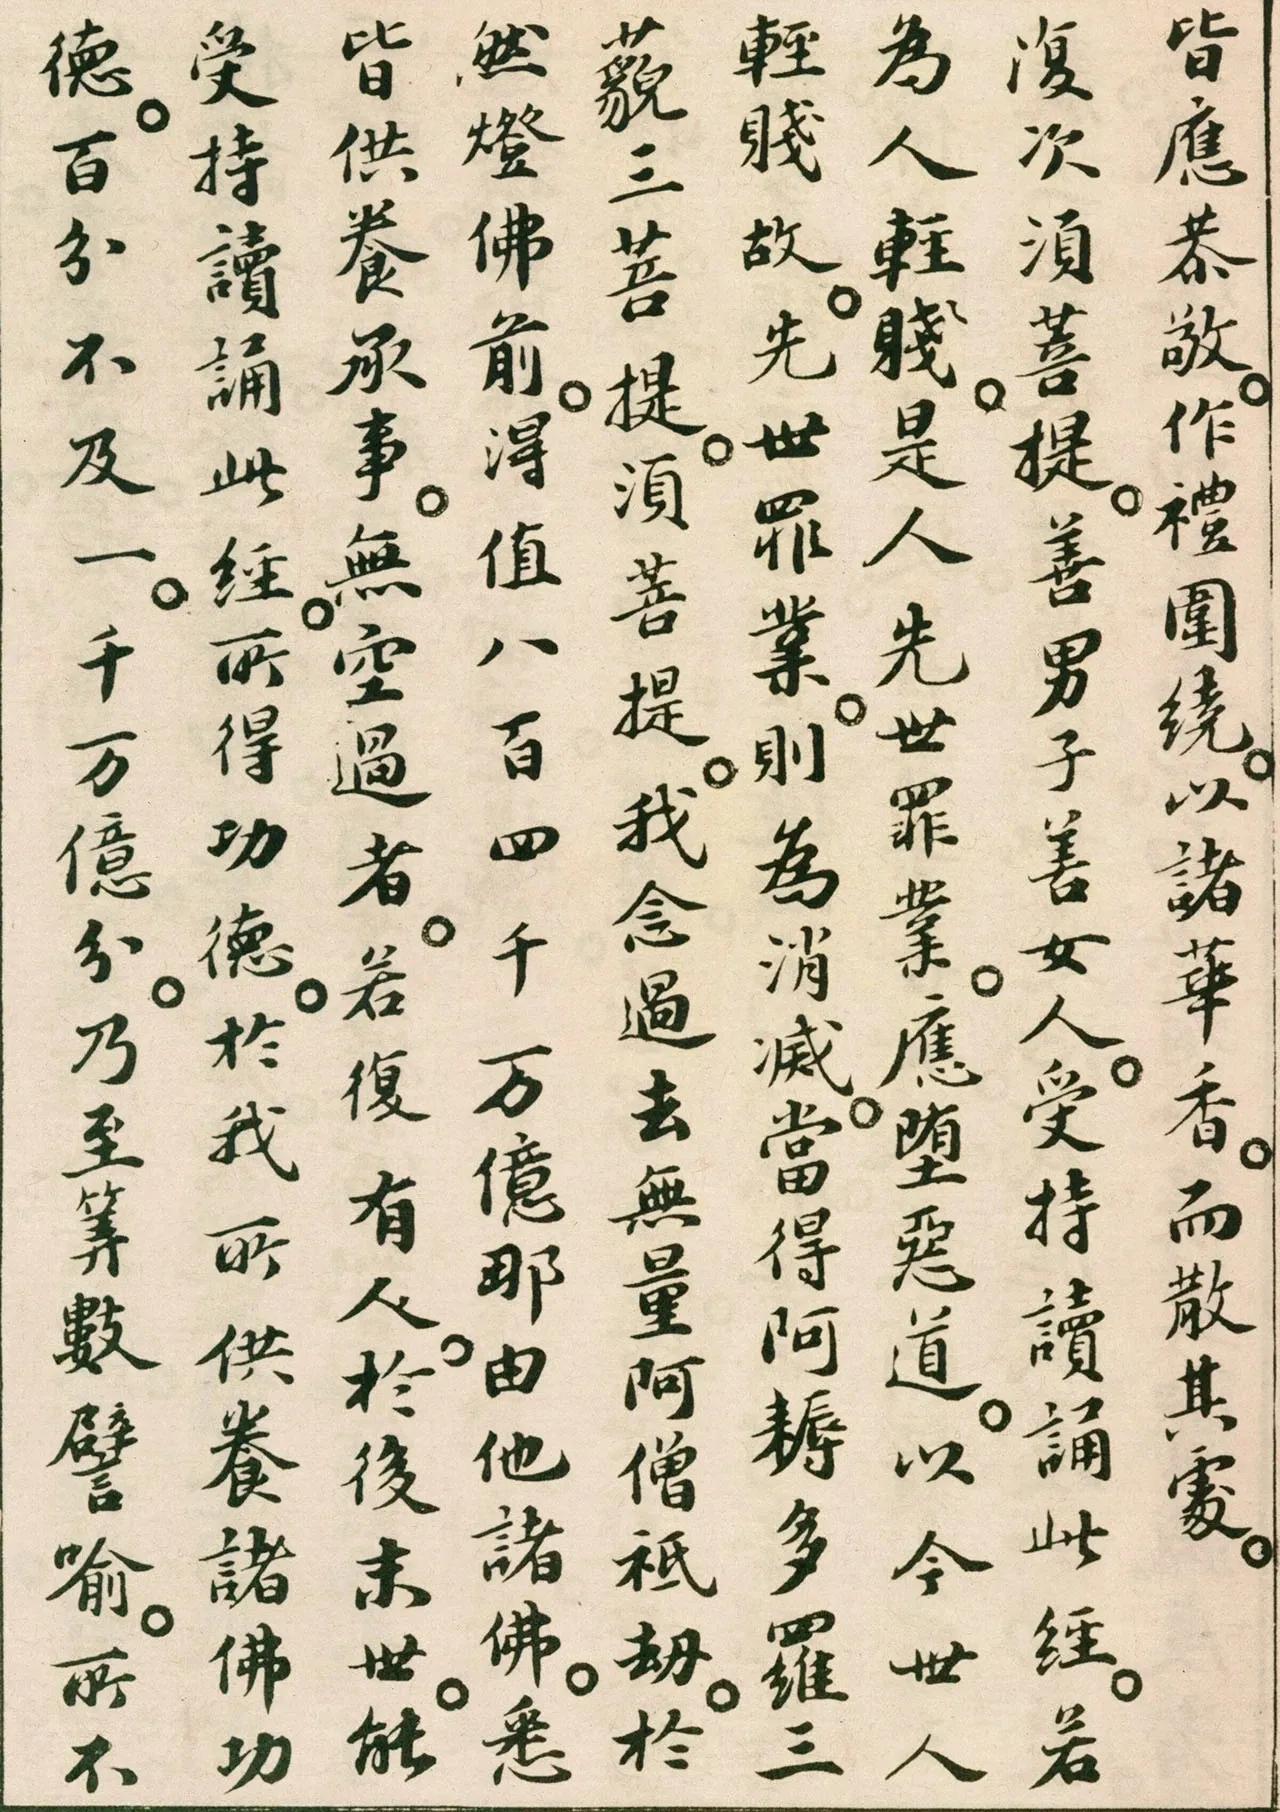 皆應恭敬。作禮圍繞。以諸華香。而散其處。
復次須菩提。善男子善女人。受持讀誦此經。若
為人輕賤。是人先世罪業。應堕惡道。以今世人
輕賤故。先世罪業。則為消滅。當得阿耨多羅三
藐三菩提。須菩提。我念過去無量阿僧祇劫。於
然燈佛前。得值八百四千万億那由他諸佛。悉
皆供養承事。無空過者。若復有人。於後末世。能
受持讀誦此經。所得功德。於我所供養諸佛功
德。百分不及一。千万億分。乃至筭數譬喻。所不